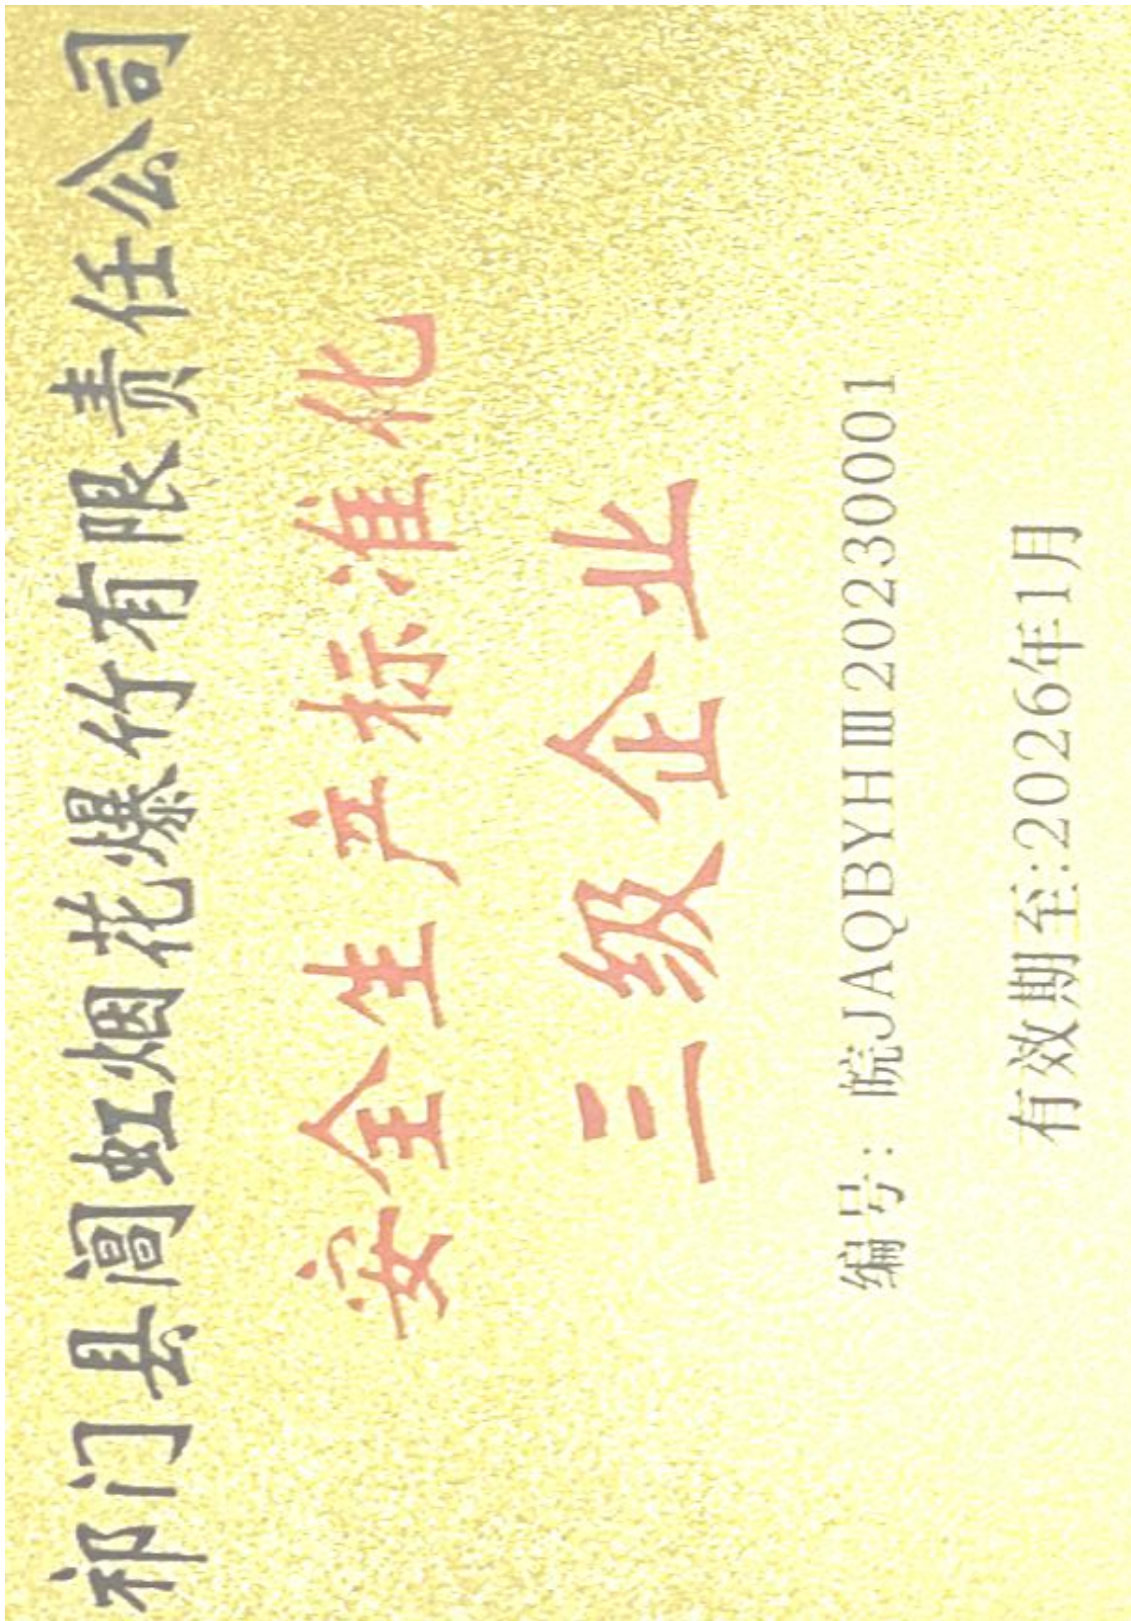 祁门县阊虹烟花爆竹有限责任公司
安全生产标准化
三级企业
编号：皖JAQBYHⅢ20230001
有效期至:2026年1月